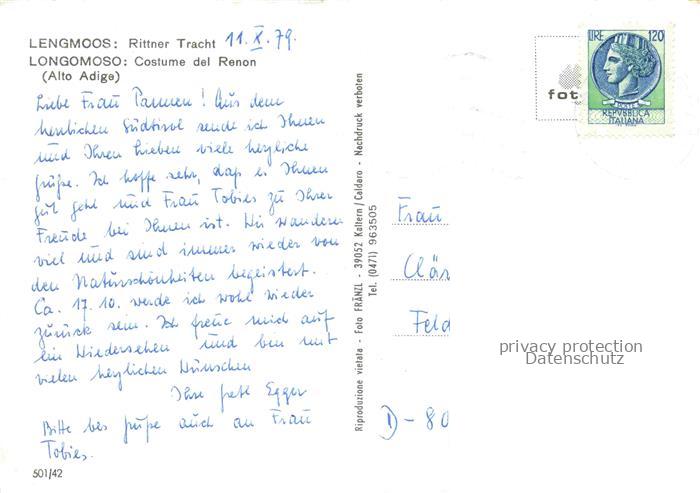 LENGMOOS: Rittner Tracht 11.X.79.
LONGOMOSO: Costume del Renon
(Alto Adige)
Liebe Frau ! Aus dem
herrlichen Südtirol sende ich Ihnen
und Ihren Lieben viele herzliche
Grüße. Ich hoffe sehr, daß es Ihnen
gut geht und Frau Tobies zu Ihrer
Freude bei Ihnen ist. Wir wandern
viel und sind immer wieder von
den Naturschönheiten begeistert.
Ca. 17.10. werde ich wohl wieder
zurück sein. Ich freue mich auf
ein Wiedersehen und bin mit
vielen herzlichen Wünschen
Ihre Egger
Bitte bes. Grüße auch an Frau
Tobies.
501/42
Riproduzione vietata - Foto FRÄNZL - 39052 Kaltern/Caldaro - Nachdruck verboten
Tel. (0471) 963505
fot
LIRE 120
POSTE
REPVBBLICA
ITALIANA
Frau
Clär
Feld
D-80
privacy protection
Datenschutz